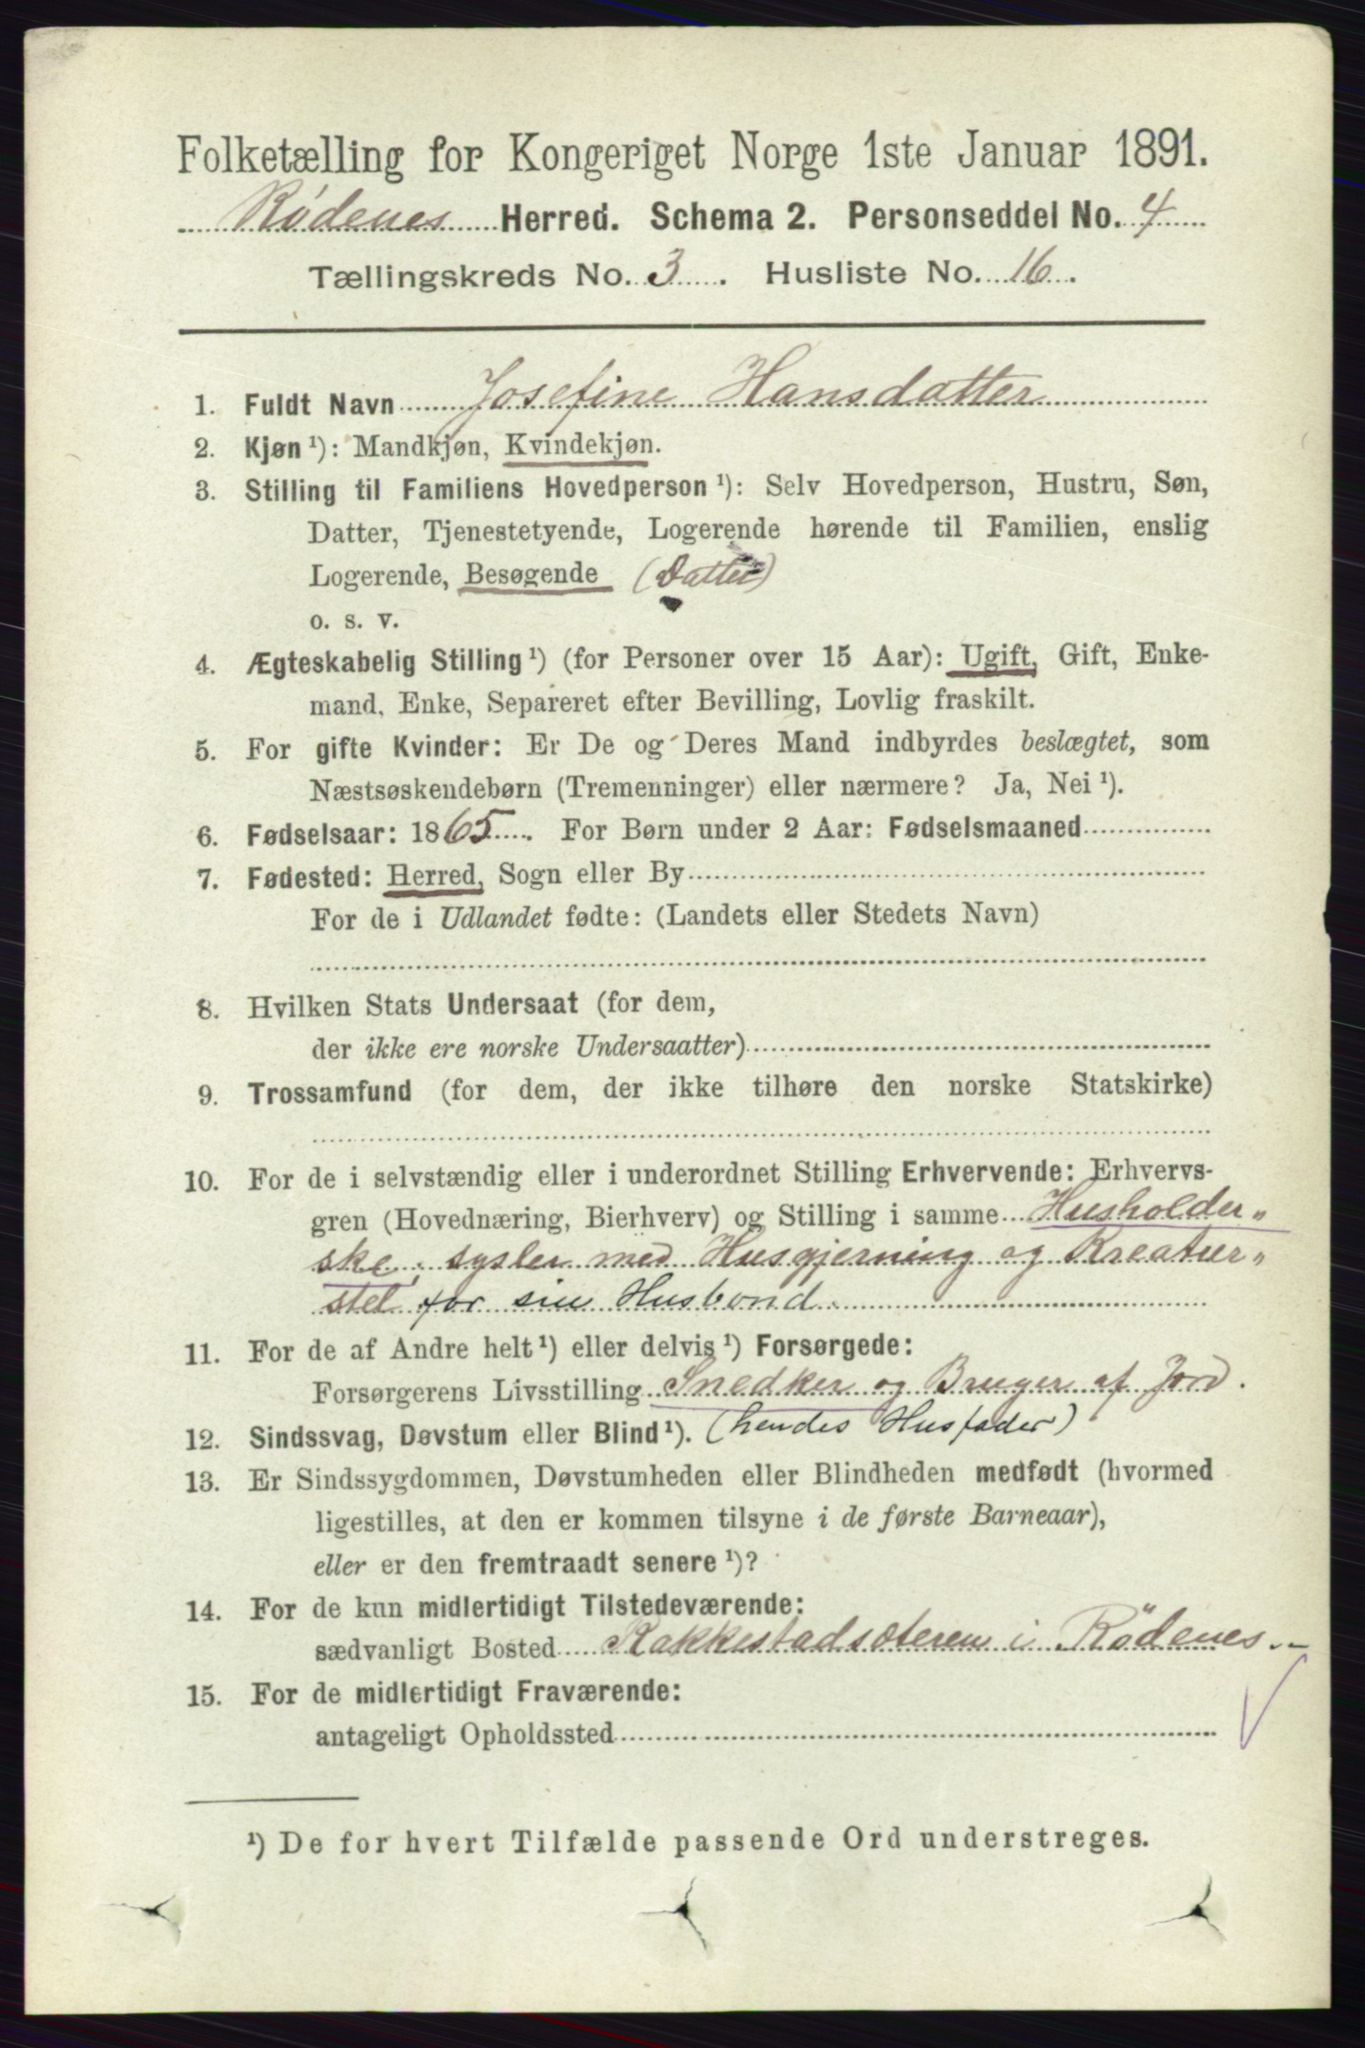 Folketælling for Kongeriget Norge 1ste Januar 1891.
Rødenes Herred. Schema 2. Personseddel No. 4
Tællingskreds No. 3. Husliste No. 16.
1. Fuldt Navn Josefine Hansdatter
2. Kjøn ¹): Mandkjøn, Kvindekjøn.
3. Stilling til Familiens Hovedperson ¹): Selv Hovedperson, Hustru, Søn,
Datter, Tjenestetyende, Logerende hørende til Familien, enslig
Logerende, Besøgende (Datter)
o. s. v.
4. Ægteskabelig Stilling ¹) (for Personer over 15 Aar): Ugift, Gift, Enke-
mand, Enke, Separeret efter Bevilling, Lovlig fraskilt.
5. For gifte Kvinder: Er De og Deres Mand indbyrdes beslægtet, som
Næstsøskendebørn (Tremenninger) eller nærmere? Ja, Nei ¹).
6. Fødselsaar: 1865. For Børn under 2 Aar: Fødselsmaaned
7. Fødested: Herred, Sogn eller By
For de i Udlandet fødte: (Landets eller Stedets Navn)
8. Hvilken Stats Undersaat (for dem,
der ikke ere norske Undersaatter)
9. Trossamfund (for dem, der ikke tilhøre den norske Statskirke)
10. For de i selvstændig eller i underordnet Stilling Erhvervende: Erhvervs-
gren (Hovednæring, Bierhverv) og Stilling i samme Husholder„
ske, sysler med Husgjerning og Kreatur„
stel for sin Husbond.
11. For de af Andre helt ¹) eller delvis ¹) Forsørgede:
Forsørgerens Livsstilling Snedker og Bruger af Jord.
12. Sindssvag, Døvstum eller Blind ¹). (hendes Husfader)
13. Er Sindssygdommen, Døvstumheden eller Blindheden medfødt (hvormed
ligestilles, at den er kommen tilsyne i de første Barneaar),
eller er den fremtraadt senere ¹)?
14. For de kun midlertidigt Tilstedeværende:
sædvanligt Bosted Rakkestadsæteren i Rödenes.-
15. For de midlertidigt Fraværende:
antageligt Opholdssted
¹) De for hvert Tilfælde passende Ord understreges.